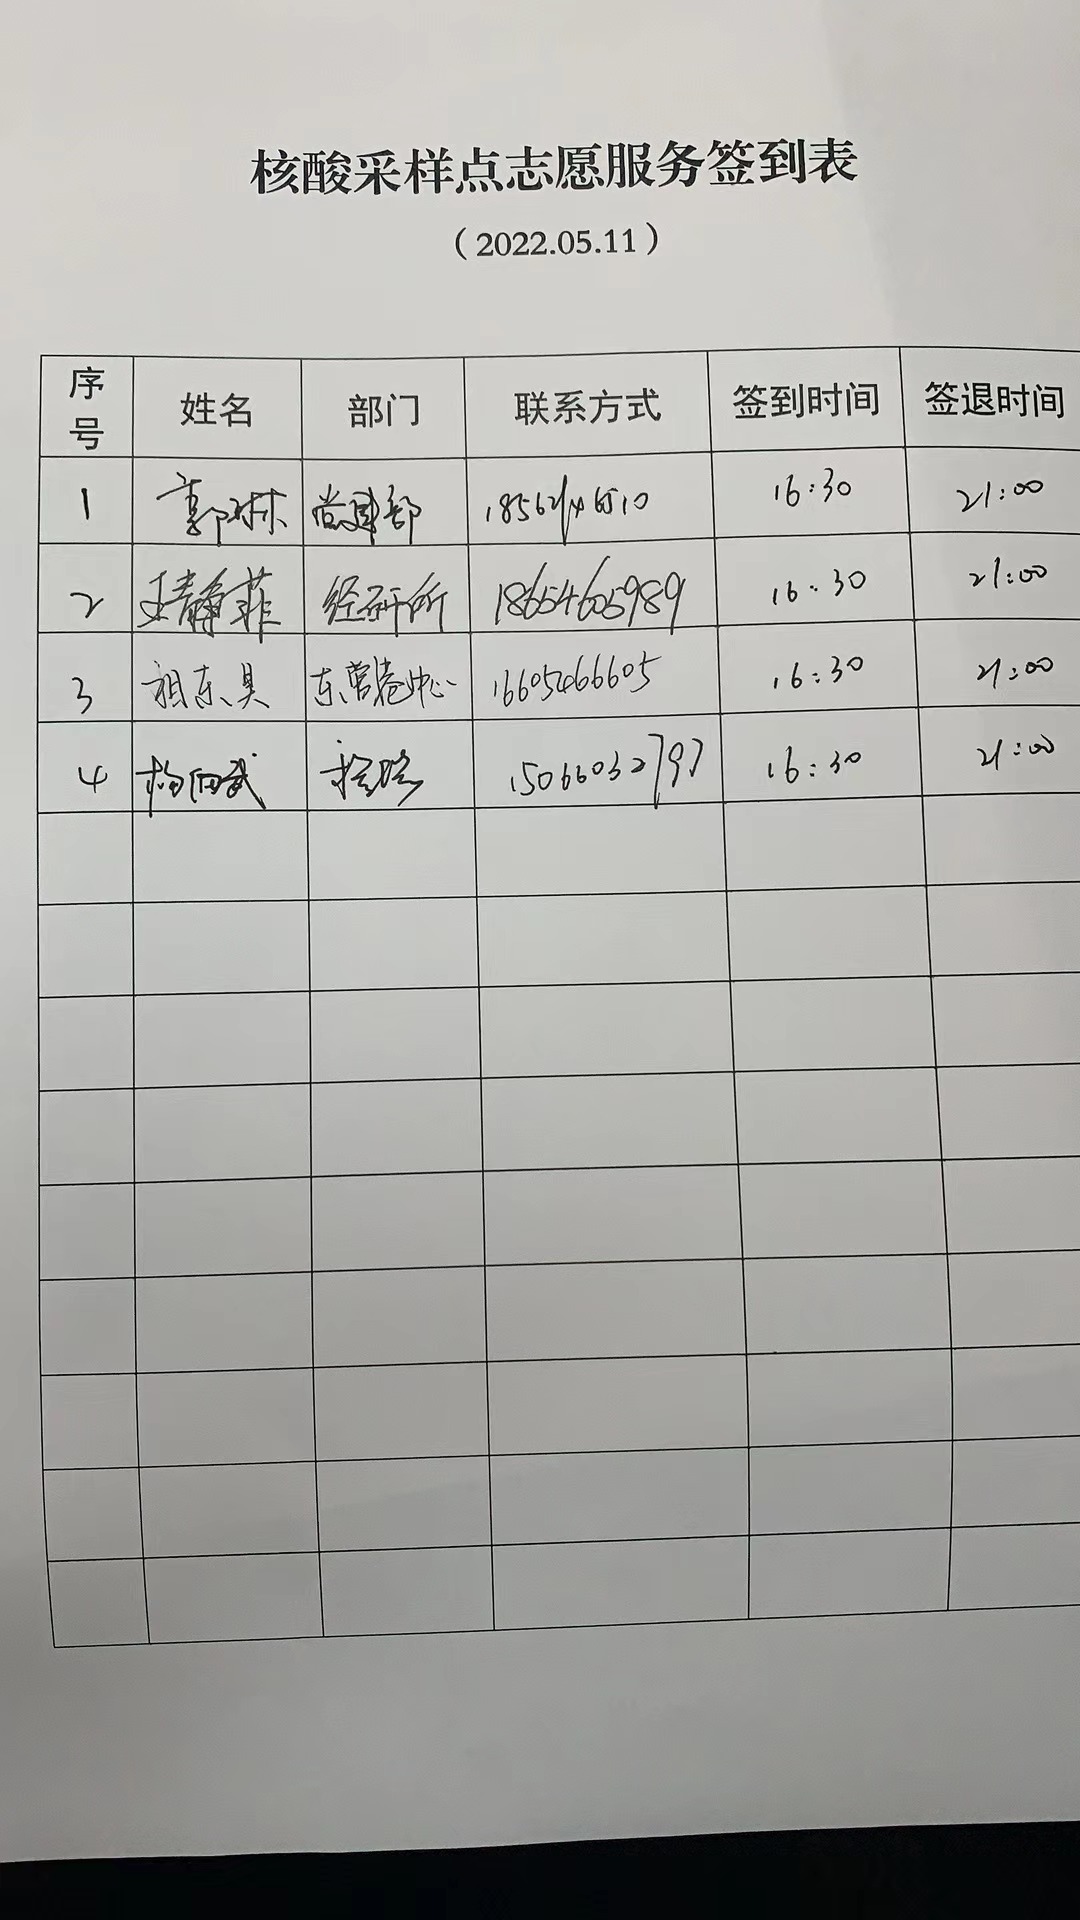 核酸采样点志愿服务签到表
（2022.05.11）
序号 姓名 部门 联系方式 签到时间 签退时间
1 郭琳 党建部 16:30 21:00
2 王静菲 经研所 18654605989 16:30 21:00
3 东营港中心 16605466605 16:30 21:00
4 15066032797 16:30 21:00